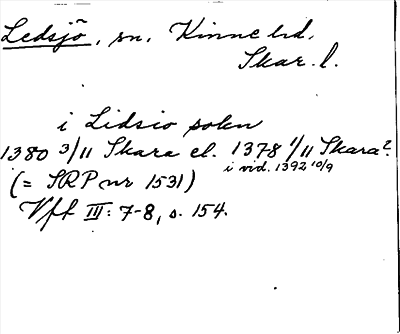 Ledsjö, sn. Kinne hd.
Skar. l.
i Lidsio sokn
1380 3/11 Skara el. 1378 1/11 Skara?
i vid. 1392 10/9
(= SRP nr 1531)
Vff III: 7-8, s. 154.